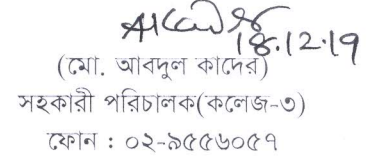 18.12.19
(মো. আবদুল কাদের)
সহকারী পরিচালক(কলেজ-৩)
ফোন : ০২-৯৫৫৬০৫৭